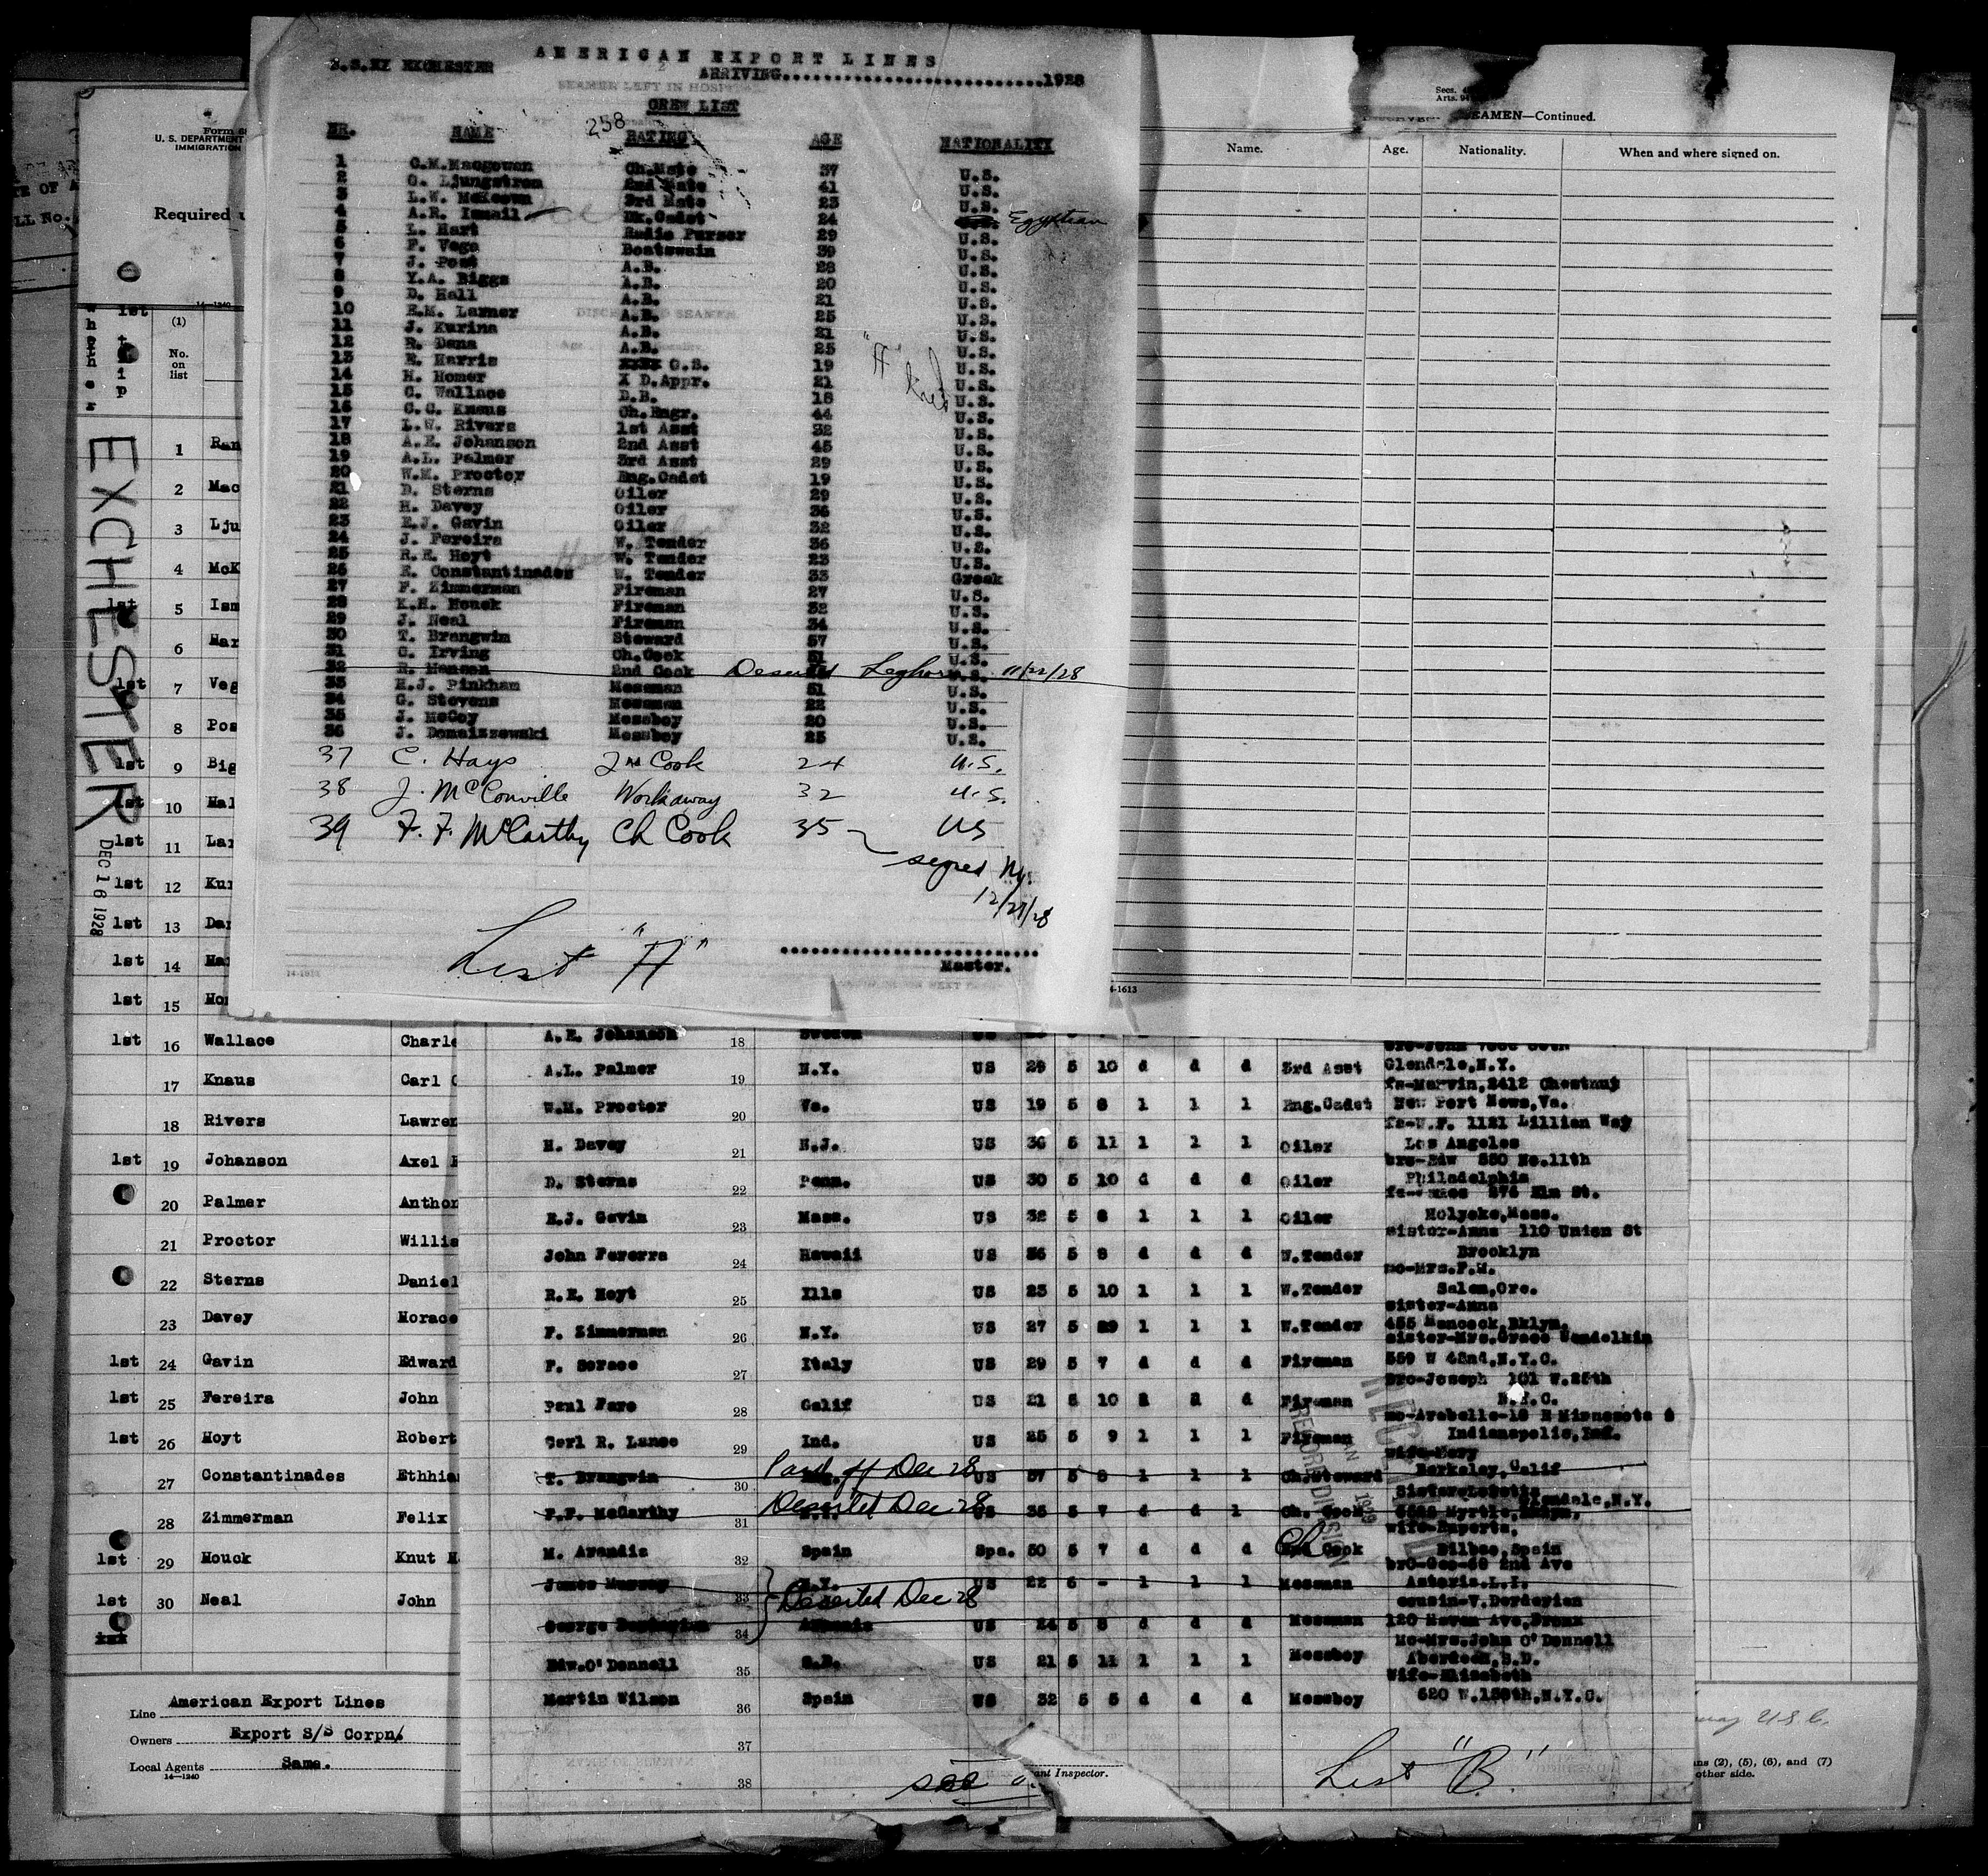 AMERICAN EXPORT LINES
S.S.MY EXCHESTER ARRIVING 1928
SEAMEN LEFT IN HOSPITAL
CREW LIST
258
NR. NAME RATING AGE NATIONALITY
1 C.M.Macgowan Ch.Mate 37 U.S.
2 G. Ljungstrom 2nd Mate 41 U.S.
3 L.W. McKeown 3rd Mate 23 U.S.
4 A.R. Ismail Dk.Cadet 24 Egyptian
5 L. Hart Radio Purser 29 U.S.
6 F. Vega Boatswain 39 U.S.
7 J. Post A.B. 28 U.S.
8 Y.A. Biggs A.B. 20 U.S.
9 D. Hall A.B. 21 U.S.
10 E.M. Larner A.B. 25 U.S.
11 J. Kurina A.B. 21 U.S.
12 R. Dana A.B. 25 U.S.
13 E. Harris O.S. 19 U.S.
14 H. Homer X D.Appr. 21 U.S.
15 C. Wallace D.B. 18 U.S.
16 C.C. Knaus Ch.Engr. 44 U.S.
17 L.W. Rivers 1st Asst 32 U.S.
18 A.E. Johanson 2nd Asst 45 U.S.
19 A.L. Palmer 3rd Asst 29 U.S.
20 W.M. Proctor Eng.Cadet 19 U.S.
21 D. Sterns Oiler 29 U.S.
22 H. Davey Oiler 36 U.S.
23 E.J. Gavin Oiler 32 U.S.
24 J. Fereira W. Tender 36 U.S.
25 R.E. Hoyt W. Tender 23 U.S.
26 E. Constantinades W. Tender 33 Greek
27 F. Zimmerman Fireman 27 U.S.
28 K.H. Houck Fireman 32 U.S.
29 J. Neal Fireman 34 U.S.
30 T. Brangwin Steward 57 U.S.
31 G. Irving Ch.Cook 51 U.S.
32 R. Henson 2nd Cook Deserted Leghorn 11/22/28
33 H.J. Pinkham Messman 51 U.S.
34 G. Stevens Messman 22 U.S.
35 J. McCoy Messboy 20 U.S.
36 J. Domaiszewski Messboy 25 U.S.
37 C. Hays 2nd Cook 24 U.S.
38 J. McConville Workaway 32 U.S.
39 F. F. McCarthy Ch Cook 35 US
signed Ny.
12/27/28
List "A"
Master.
SEAMEN—Continued.
Name. Age. Nationality. When and where signed on.
4-1613
U. S. DEPARTMENT
IMMIGRATION
Required
14-1240
(1)
No.
on
list
EXCHESTER
DEC 16 1928
1 Ran
2 Mac
3 Lju
4 McK
1st 5 Ism
6 Har
1st 7 Veg
8 Pos
1st 9 Big
1st 10 Hal
1st 11 Lar
1st 12 Kur
1st 13 Dan
1st 14 Ha
1st 15 Ho
1st 16 Wallace Charle
17 Knaus Carl C
18 Rivers Lawren
1st 19 Johanson Axel E
20 Palmer Anthon
21 Proctor Willia
22 Sterns Daniel
23 Davey Horace
1st 24 Gavin Edward
1st 25 Fereira John
1st 26 Hoyt Robert
27 Constantinades Ethhia
28 Zimmerman Felix
1st 29 Houck Knut H
1st 30 Neal John
Line American Export Lines
Owners Export S/S Corpn.
Local Agents Same.
14—1240
A.E. Johanson 18 Sweden US
A.L. Palmer 19 N.Y. US 29 5 10 d d d 3rd Asst Glendale,N.Y.
fa-Marvin,2412 Chestnut
W.M. Proctor 20 Va. US 19 5 8 1 1 1 Eng.Cadet New Port News,Va.
fa-W.F. 1121 Lillian Way
H. Davey 21 N.J. US 36 5 11 1 1 1 Oiler Los Angeles
bro-Edw 880 No.11th
D. Sterns 22 Penn. US 30 5 10 d d d Oiler Philadelphia
276 Elm St.
E.J. Gavin 23 Mass. US 32 5 8 1 1 1 Oiler Holyoke,Mass.
sister-Anna 110 Union St
John Fererra 24 Hawaii US 36 5 8 d d d W.Tender Brooklyn
mo-Mrs.F.M.
R.E. Hoyt 25 Ills US 23 5 10 1 1 1 W.Tender Salem,Ore.
sister-Anna
F. Zimmerman 26 N.Y. US 27 5 1 1 1 W.Tender 455 Hancock,Bklyn.
sister-Mrs.Grace
F. Sorace 27 Italy US 29 5 7 d d d Fireman 559 W 42nd,N.Y.C.
bro-Joseph 101 W.25th
Paul Fare 28 Calif US 21 5 10 d Fireman N.Y.C.
mo-Arabelle-18 N Minnesota
Carl R. Lance 29 Ind. US 25 5 9 1 1 1 Fireman Indianapolis,Ind.
wife-Mary
T. Brangwin 30 Paid off Dec 28 US 57 5 8 1 1 1 Ch.Steward Berkeley,Calif
F.F. McCarthy 31 Deserted Dec 28 US 35 5 7 d d 1 Ch. Cook Myrtle, Glendale,N.Y.
wife-Ruperta,
M. Arandia 32 Spain Spa. 50 5 7 d d d Ch Cook Bilbao,Spain
bro-Geo-60 2nd Ave
James Murray 33 N.Y. US 22 6 - 1 1 1 Messman Astoria.L.I.
cousin-V.Derderian
Deserted Dec 28
George 34 US 24 5 8 d d d Messman 120 Haven Ave,Bronx
Mo-Mrs.John O'Donnell
Edw.O'Donnell 35 S.D. US 21 5 11 1 1 1 Messboy Aberdeen,S.D.
Wife-Elizabeth
Martin Wilson 36 Spain US 32 5 5 d d d Messboy 620 W.138th,N.Y.C.
37
38
see
Inspector.
List "B"
RECORD DIVISION
ns (2), (5), (6), and (7)
other side.